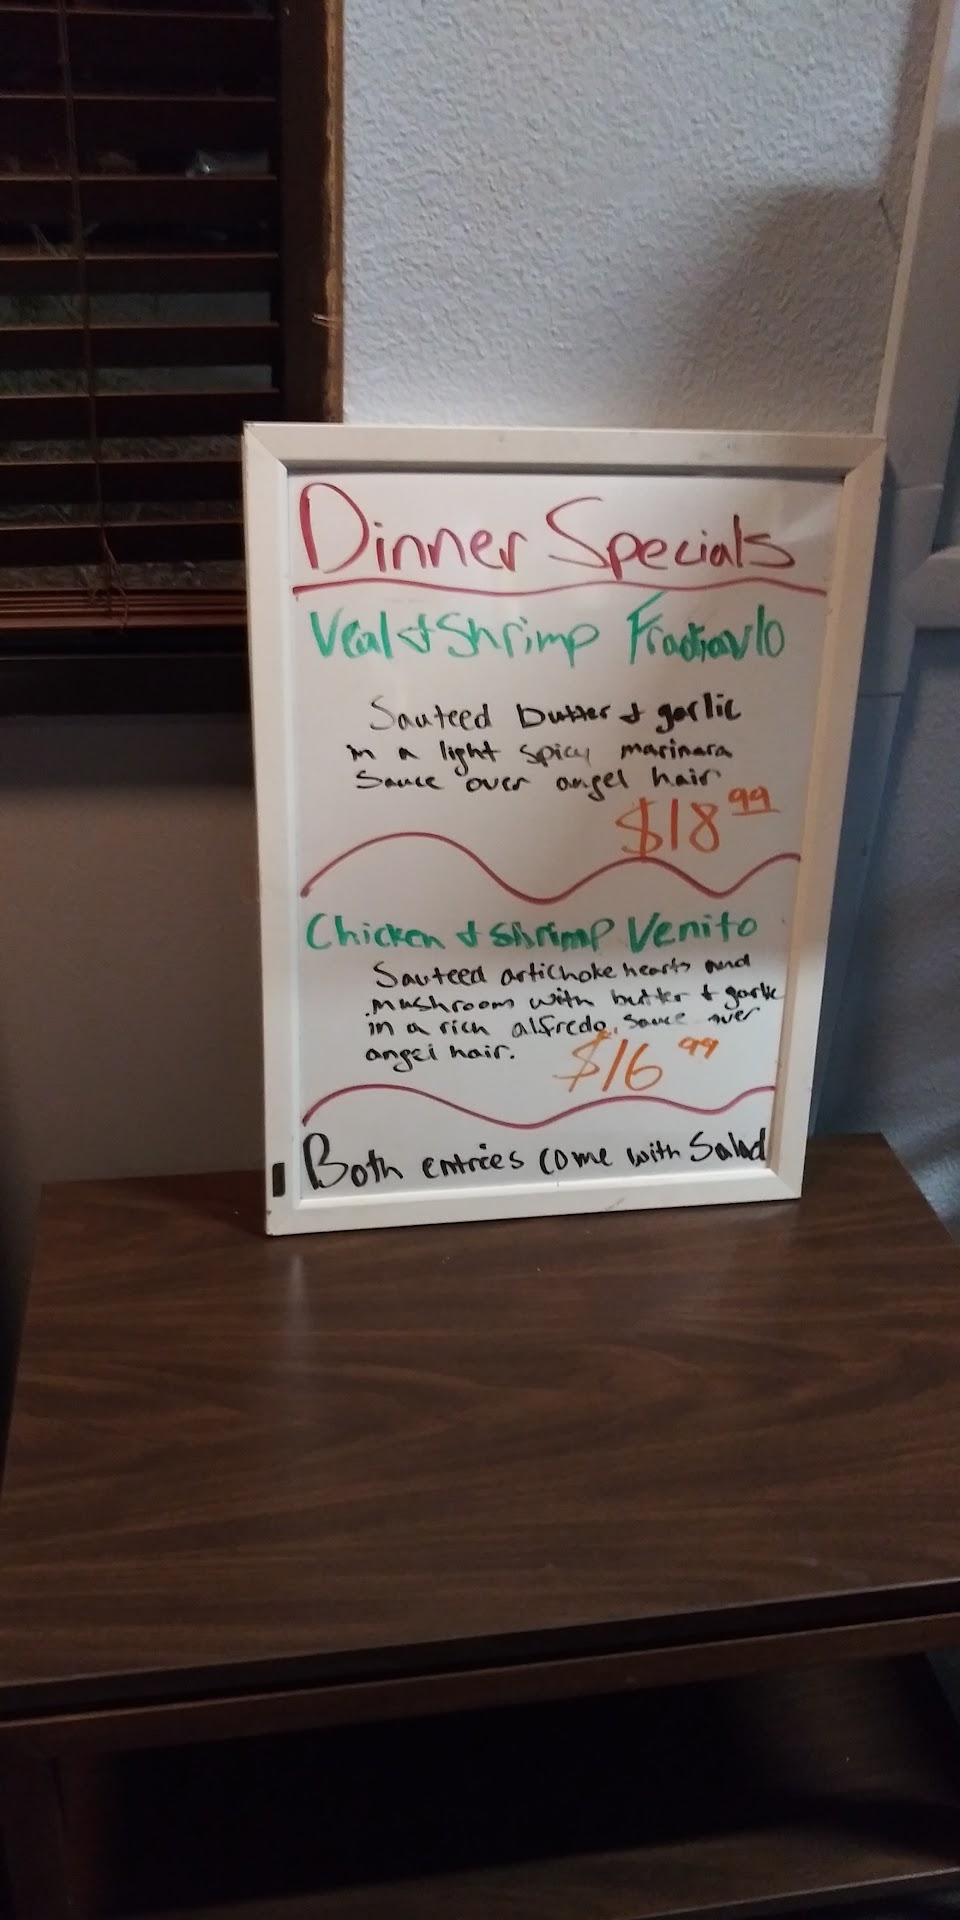 Dinner Specials
Veal & Shrimp Fradiavlo
Sauteed butter & garlic
in a light spicy marinara
Sauce over angel hair
$18 99
Chicken & Shrimp Venito
Sauteed artichoke hearts and
mushroom with butter & garlic
in a rich alfredo sauce over
angel hair.
$16 99
Both entries come with Salad